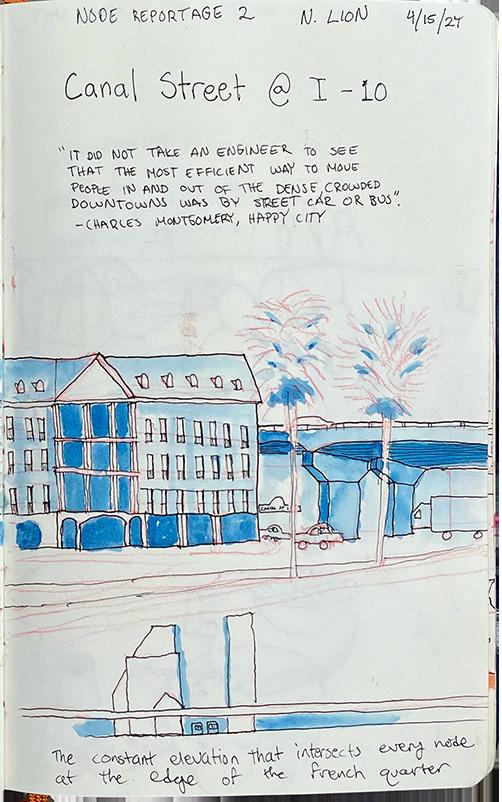 NODE REPORTAGE 2 N. LION 4/15/24
Canal Street @ I-10
"IT DID NOT TAKE AN ENGINEER TO SEE
THAT THE MOST EFFICIENT WAY TO MOVE
PEOPLE IN AND OUT OF THE DENSE, CROWDED
DOWNTOWNS WAS BY STREET CAR OR BUS".
-CHARLES MONTGOMERY, HAPPY CITY
CANAL ST
The constant elevation that intersects every node
at the edge of the french quarter